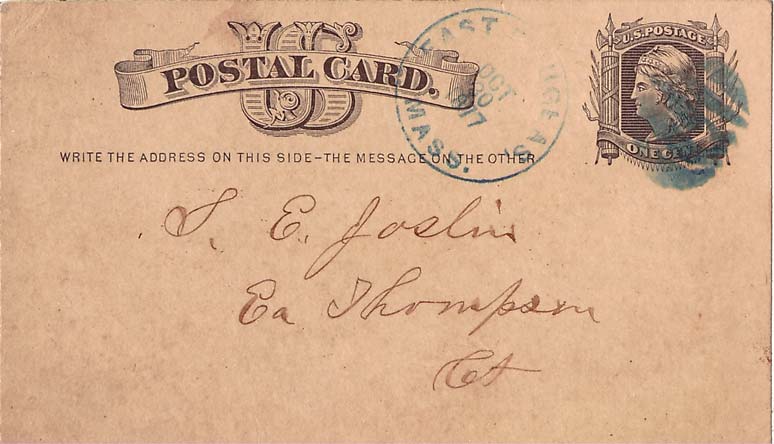 US
POSTAL CARD.
U.S. POSTAGE
ONE CENT
EAST
MASS.
OCT
20
WRITE THE ADDRESS ON THIS SIDE-THE MESSAGE ON THE OTHER
S. E. Joslin
Ea Thompson
Ct